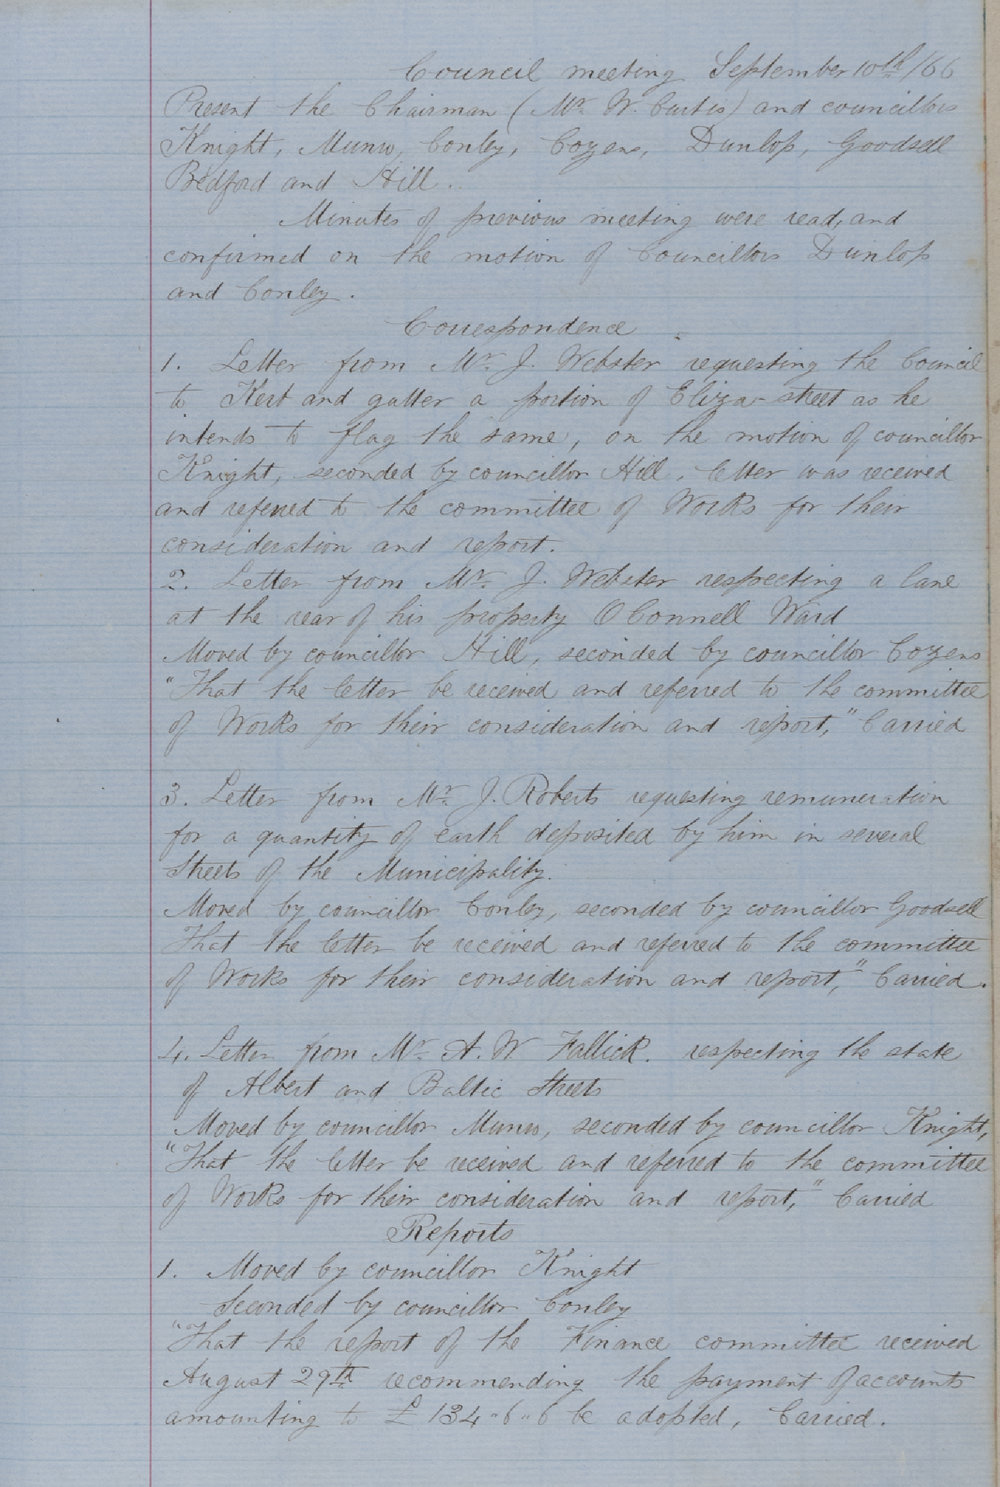 Council meeting September 10th/66
Present the Chairman (Mr. W. Curtis) and councillors
Knight, Munro, Conley, Cozens, Dunlop, Goodsell
Bedford and Hill.
Minutes of previous meeting were read, and
confirmed on the motion of Councillors Dunlop
and Conley.
Correspondence
1. Letter from Mr. J. Webster requesting the Council
to Kerb and gutter a portion of Eliza-street as he
intends to flag the same, on the motion of councillor
Knight, seconded by councillor Hill, letter was received
and referred to the committee of Works for their
consideration and report.
2. Letter from Mr. J. Webster respecting a lane
at the rear of his property O'Connell Ward
Moved by councillor Hill, seconded by councillor Cozens
"That the letter be received and referred to the committee
of Works for their consideration and report," Carried
3. Letter from Mr. J. Roberts requesting remuneration
for a quantity of earth deposited by him in several
Streets of the Municipality.
Moved by councillor Conley, seconded by councillor Goodsell
That the letter be received and referred to the committee
of Works for their consideration and report," Carried.
4. Letter from Mr. A. W Fallick. respecting the state
of Albert and Baltic Streets
Moved by councillor Munro, seconded by councillor Knight,
"That the letter be received and referred to the committee
of Works for their consideration and report," Carried
Reports
1. Moved by councillor Knight
Seconded by councillor Conley
"That the report of the Finance committee received
August 29th recommending the payment of accounts
amounting to £134"6"6 be adopted, Carried.